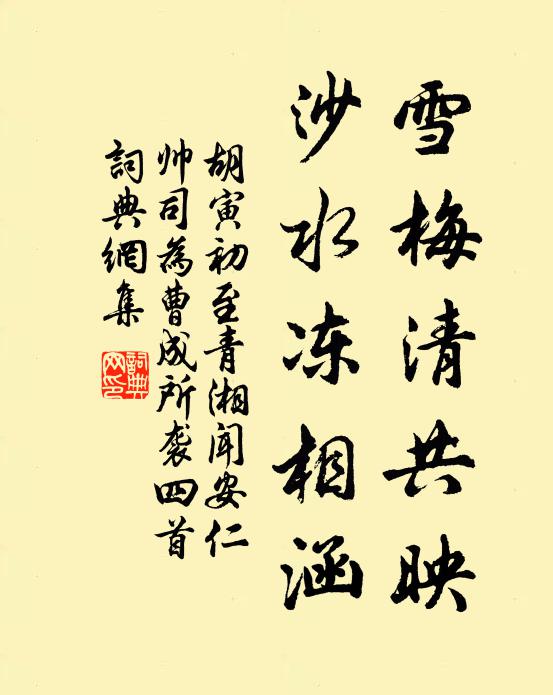 雪梅清共映
沙水冻相涵
胡寅初至青湘闻安仁
帅司為曹成所袭四首
詞典網集
詞典
网印